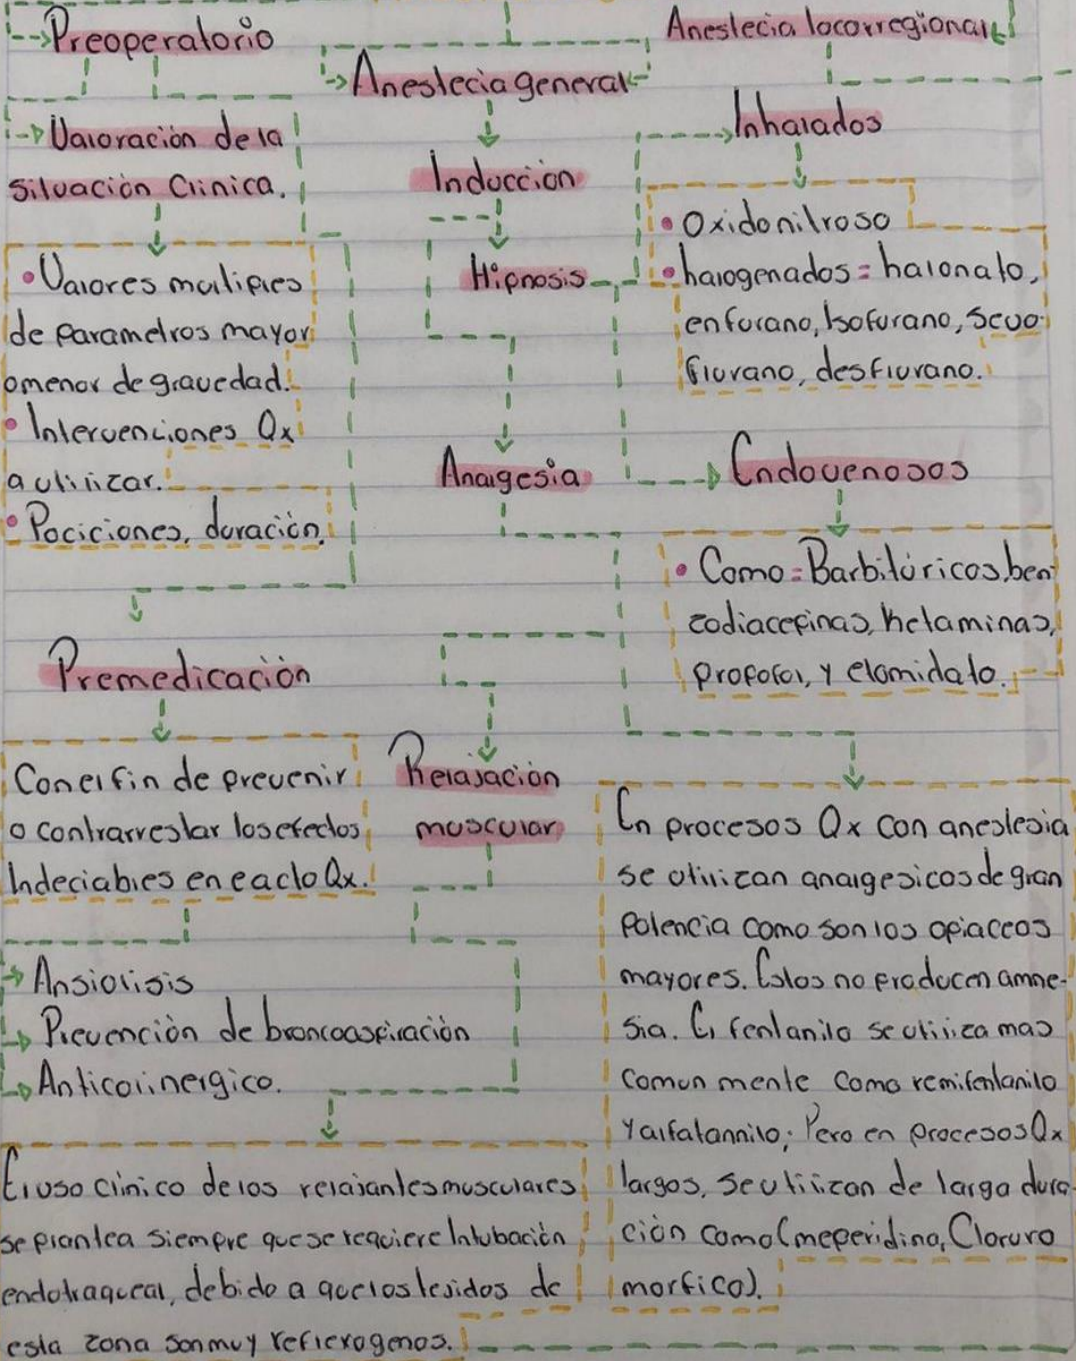 Preoperatorio
Valoración de la
situación Clinica.
• Valores multiples
de parametros mayor
o menor de gravedad.
• Intervenciones Qx
a utilizar.
• Pociciones, duración.
Premedicación
Con el fin de prevenir
o contrarrestar los efectos
Indeciables en e acto Qx.
Ansiolisis
Prevención de broncoaspiración
Anticolinergico.
Anestecia general
Inducción
Hipnosis
Analgesia
Relajación
muscular
El uso clinico de los relajantes musculares
se plantea siempre que se requiere Intubación
endotraqueal, debido a que los tejidos de
esta zona son muy reflexogenos.
Anestecia locorregional
Inhalados
• Oxido nitroso
• halogenados = halonato,
enfurano, Isofurano, Sevo
flurano, desflurano.
Endovenosos
• Como = Barbitúricos, ben
zodiacepinas, Ketaminas,
propofol, y etomidato.
En procesos Qx con anestesia
se utilizan analgesicos de gran
Potencia como son los opiaceos
mayores. Estos no producen amne-
sia. El fentanilo se utiliza mas
comun mente como remifentanilo
y alfatannilo; Pero en procesos Qx
largos, se utilizan de larga dura
ción como (meperidina, Cloruro
morfico).